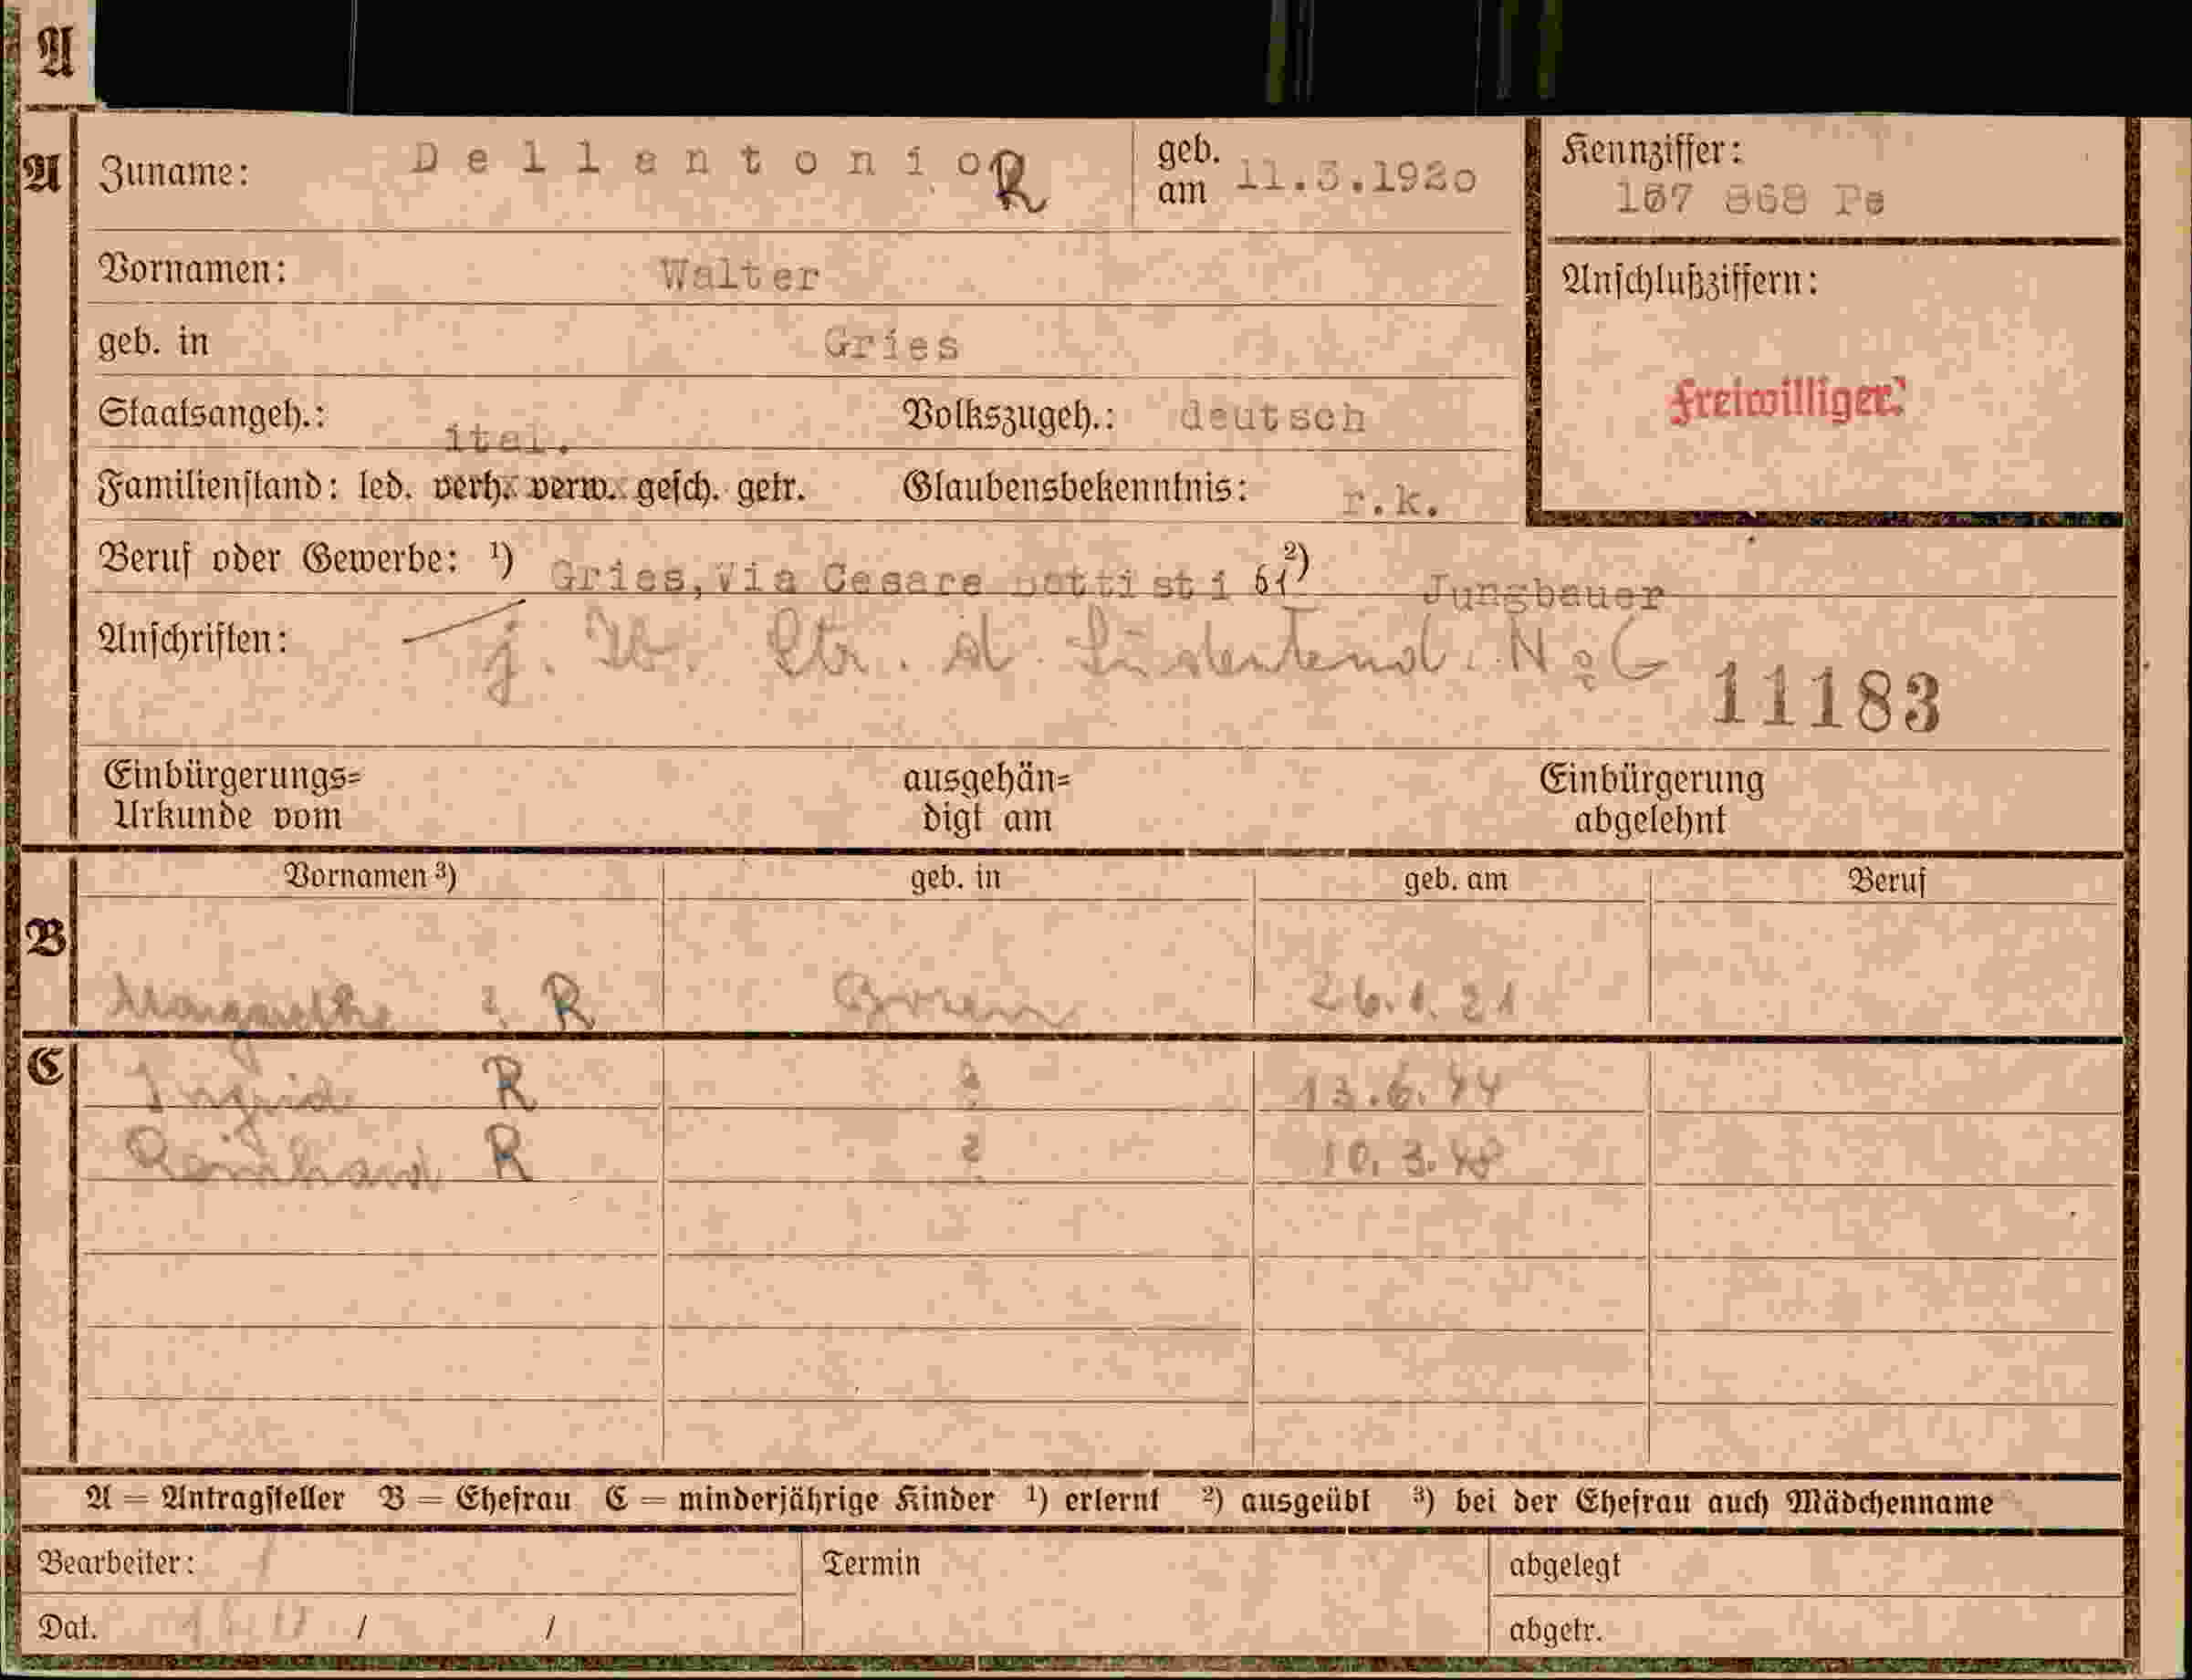 A
A Zuname: Dellantonio R geb. am 11.3.1920 Kennziffer: 167 868 Pe
Vornamen: Walter Anschlußziffern:
geb. in Gries
Freiwilliger.
Staatsangeh.: ital. Volkszugeh.: deutsch
Familienstand: led. verh. verw. gesch. getr. Glaubensbekenntnis: r.k.
Beruf oder Gewerbe: ¹) Gries, Via Cesare Battisti 61 ²) Jungbauer
Anschriften: j. Str. No 6
11183
Einbürgerungs= ausgehän= Einbürgerung
Urkunde vom digt am abgelehnt
Vornamen ³) geb. in geb. am Beruf
B
Margarethe R Bozen 26.1.21
C
Ingrid R 13.6.44
Reinhard R 10.3.48
A = Antragsteller B = Ehefrau C = minderjährige Kinder ¹) erlernt ²) ausgeübt ³) bei der Ehefrau auch Mädchenname
Bearbeiter: Termin abgelegt
Dat. / / abgetr.